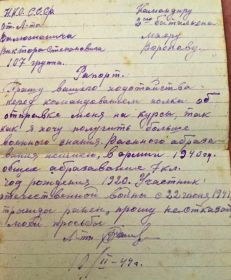 Н.К.О. С.С.С.Р.
Командиру
от Л-та
2го батальона
Виктора Степановича
майору
107 группа.
Воронову.
Рапорт.
Прошу вашего ходатайства
перед командованием полка об
отправке меня на курсы, так
как я хочу получить больше
военных знаний. Военного образо
вания не имею, в армии 1940г.
общее образование 7 кл.
год рождения 1920. Участник
отечественной войны с 22 июня 1941
трижды ранен, прошу не отказать
моей просьбе
Л-т
III-44г.